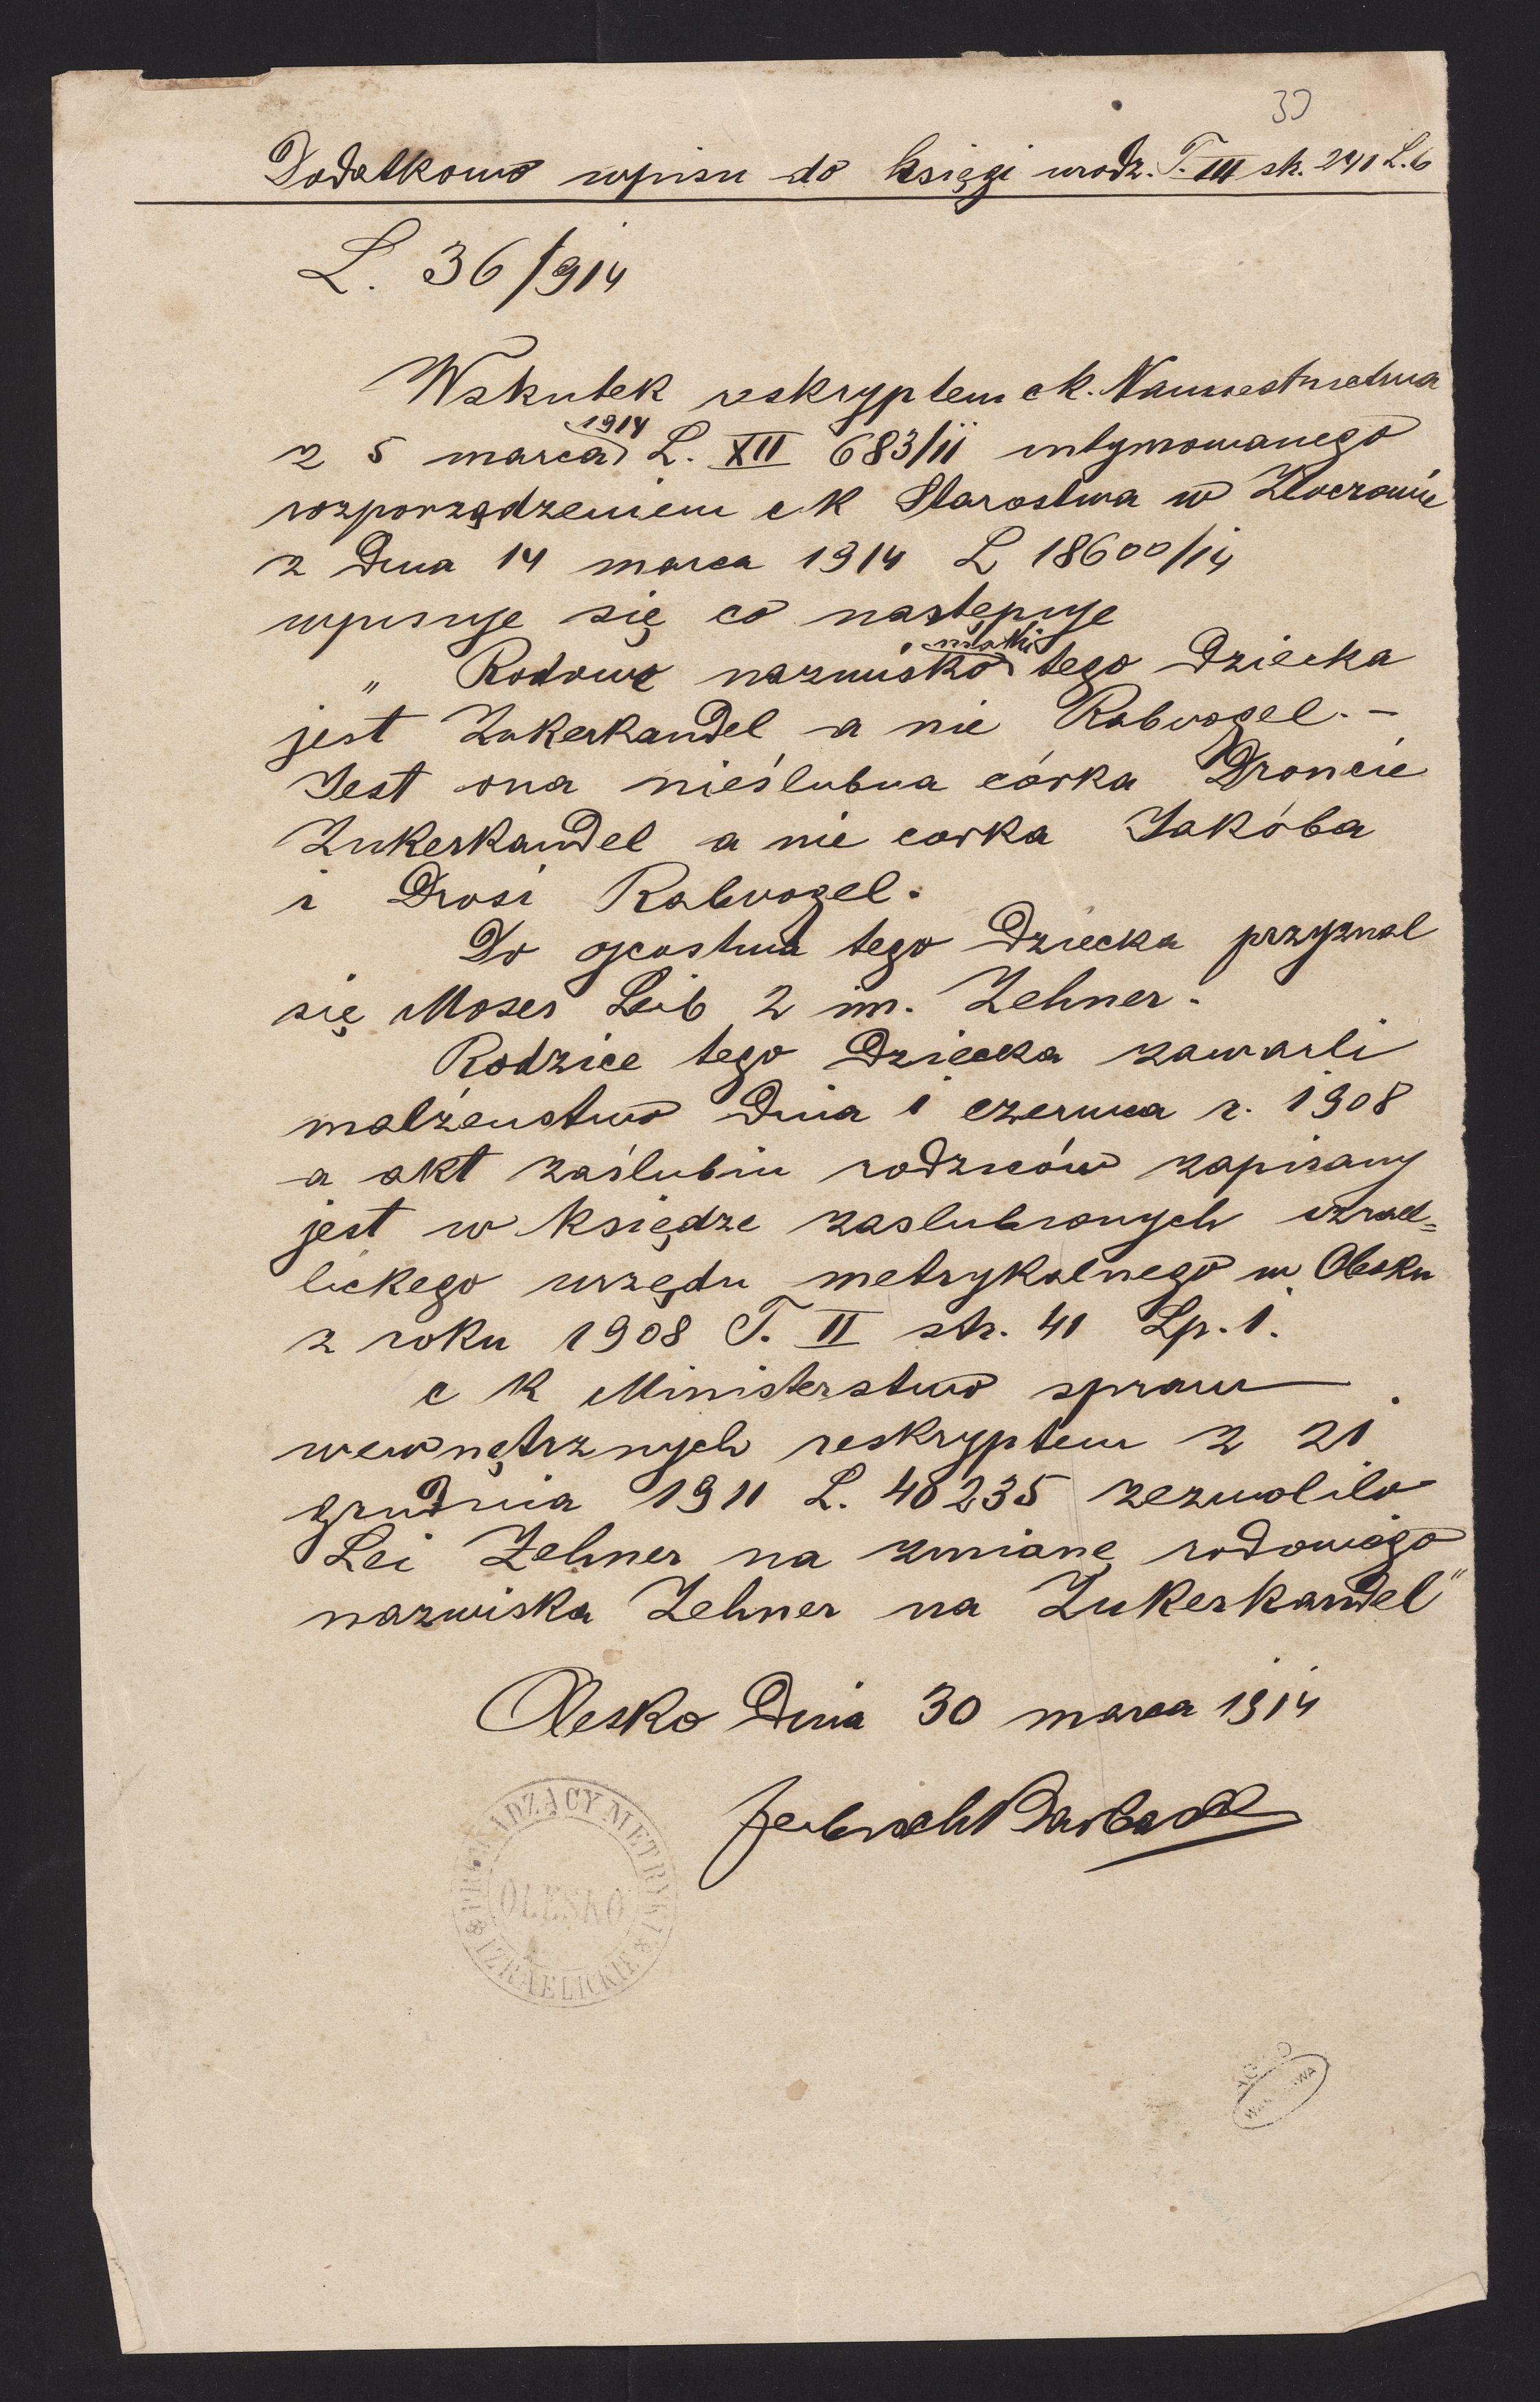 39
Dodatkowo wpisu do księgi urodz. T. III str. 241 L. 6
L. 36/914
Wskutek reskryptem c k. Namiestnictwa
z 5 marca 1914 L. XII 683/11 intymowanego
rozporządzeniem c k Starostwa w Złoczowie
z Dnia 14 marca 1914 L 18600/14
wpisuje się co następuje
„ Rodowe nazwisko matki tego Dziecka
jest Zukerkandel a nie Rabvogel. –
Jest ona nieślubna córka Broncie
Zukerkandel a nie corka Jakóba
i Drosi Rabvogel.
Do ojcostwa tego Dziecka przyznal
się Moses Leib 2 im. Zehner.
Rodzice tego Dziecka zawarli
malżenstwo Dnia 1 czerwca r. 1908
a akt zaślubin rodziców zapisany
jest w księdze zaslubionych izrael=
lickego urzędu metrykalnego w Olesku
z roku 1908 T. II str. 41 Lp. 1.
c K Ministerstwo spraw
wewnętrznych reskryptem z 21
grudnia 1911 L. 40235 zezwolilo
Lei Zehner na zmianę rodowego
nazwiska Zehner na Zukerkandel"
Olesko Dnia 30 marca 1914
PROWADZĄCY METRYKI
OLESKO
IZRAELICKIE
WARSZAWA